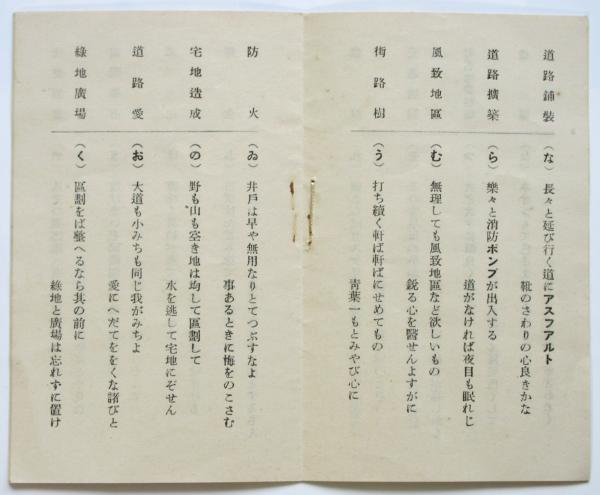 道路舗装
（な）長々と延び行く道にアスフアルト
靴のさわりの心良きかな
道路擴築
（ら）樂々と消防ポンプが出入する
道がなければ夜目も眠れじ
風致地區
（む）無理しても風致地區など欲しいもの
鋭る心を醫せんよすがに
街路樹
（う）打ち續く軒ば軒ばにせめてもの
靑葉一もとみやび心に
防火
（ゐ）井戸は早や無用なりとてつぶすなよ
事あるときに悔をのこさむ
宅地造成
（の）野も山も空き地は均して區劃して
水を逃して宅地にぞせん
道路愛
（お）大道も小みちも同じ我がみちよ
愛にへだてををくな諸びと
綠地廣場
（く）區劃をば整へるなら其の前に
綠地と廣場は忘れずに置け